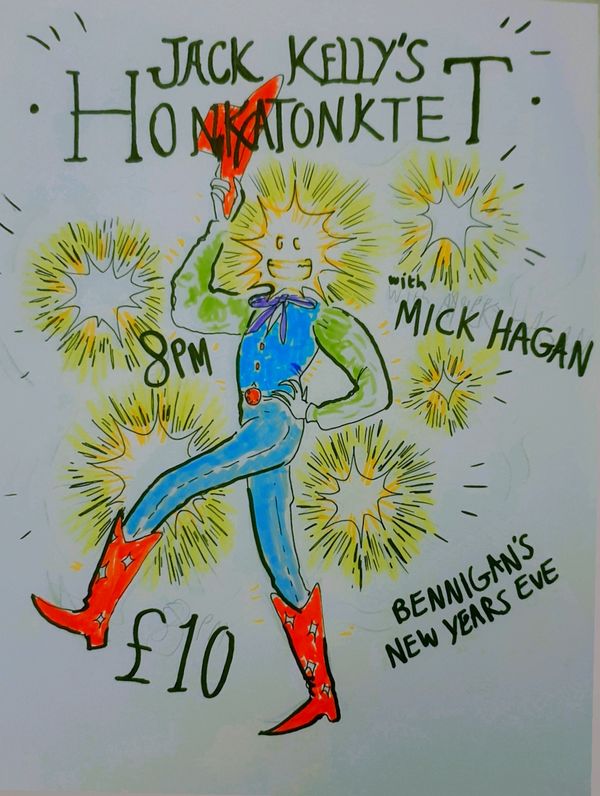 JACK KELLY'S
HONKATONKTET
with
MICK HAGAN
8PM
BENNIGAN'S
NEW YEARS EVE
£10